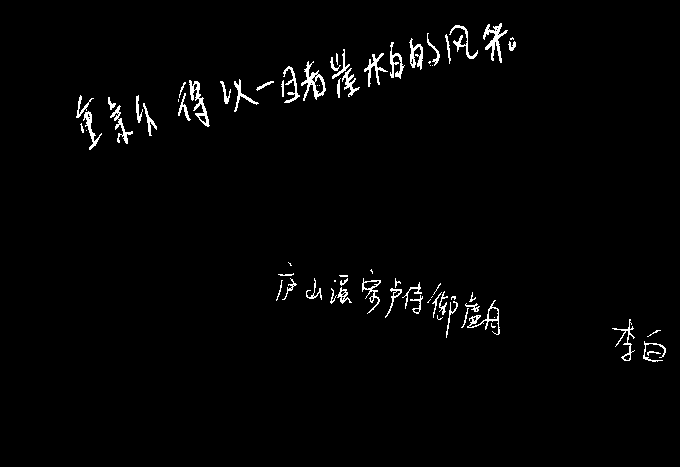 重新得以一目睹崖柏的风采。
庐山谣寄卢侍御虚舟
李白